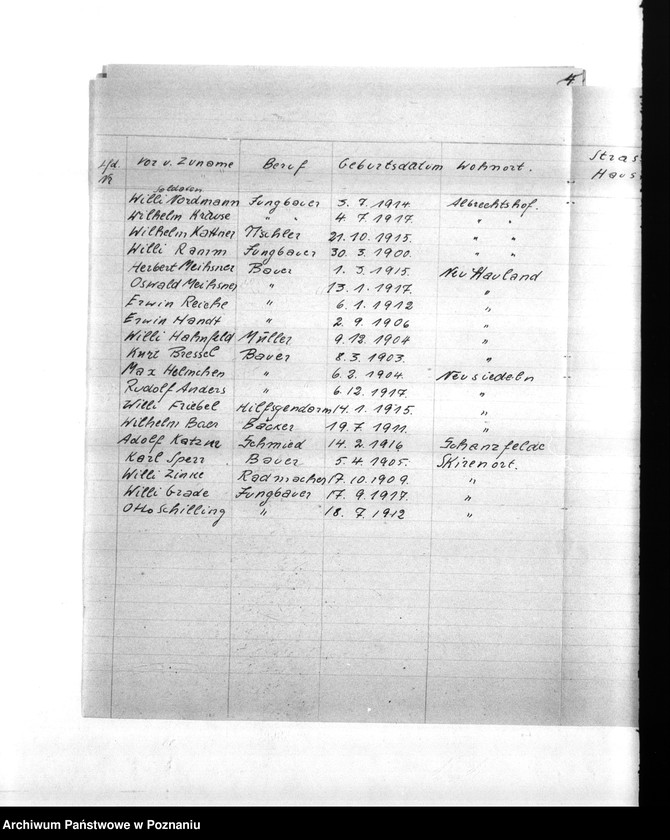 4
Lfd. Nr Vor u. Zuname Beruf Geburtsdatum Wohnort. Stras Haus
Soldaten
Willi Nordmann Jungbauer 3. 7. 1914. Albrechtshof.
Wilhelm Krause " " 4. 7. 1917. " "
Wilhelm Kattner Tischler 21. 10. 1915. " "
Willi Ramm Jungbauer 30. 3. 1900. " "
Herbert Meihsner Bauer 1. 3. 1915. Neu Hauland
Oswald Meihsner " 13. 1. 1917. "
Erwin Reiche " 6. 1. 1912 "
Erwin Handt " 2. 9. 1906 "
Willi Hahnfeld Müller 9. 12. 1904 "
Kurt Bressel Bauer 8. 3. 1903. "
Max Helmchen " 6. 2. 1904. Neusiedeln
Rudolf Anders " 6. 12. 1917. "
Willi Friebel Hilfsgendarm 14. 1. 1915. "
Wilhelm Baer Bäcker 19. 7. 1911. "
Adolf Katzur Schmied 14. 2. 1916 Schanzfelde
Karl Sperr Bauer 5. 4. 1905. Skirenort.
Willi Zinke Radmacher 17. 10. 1909. "
Willi Grade Jungbauer 17. 9. 1917. "
Otto Schilling " 18. 7. 1912 "
Archiwum Państwowe w Poznaniu